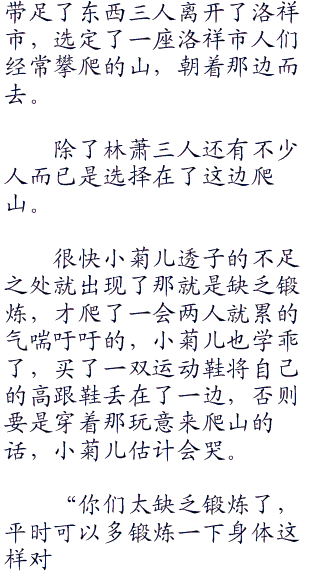 带足了东西三人离开了洛祥
市，选定了一座洛祥市人们
经常攀爬的山，朝着那边而
去。
除了林萧三人还有不少
人而已是选择在了这边爬
山。
很快小菊儿透子的不足
之处就出现了那就是缺乏锻
炼，才爬了一会两人就累的
气喘吁吁的，小菊儿也学乖
了，买了一双运动鞋将自己
的高跟鞋丢在了一边，否则
要是穿着那玩意来爬山的
话，小菊儿估计会哭。
“你们太缺乏锻炼了，
平时可以多锻炼一下身体这
样对